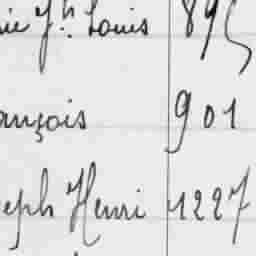 ie Jh. Louis 895
ançois 901
eph Henri 1227